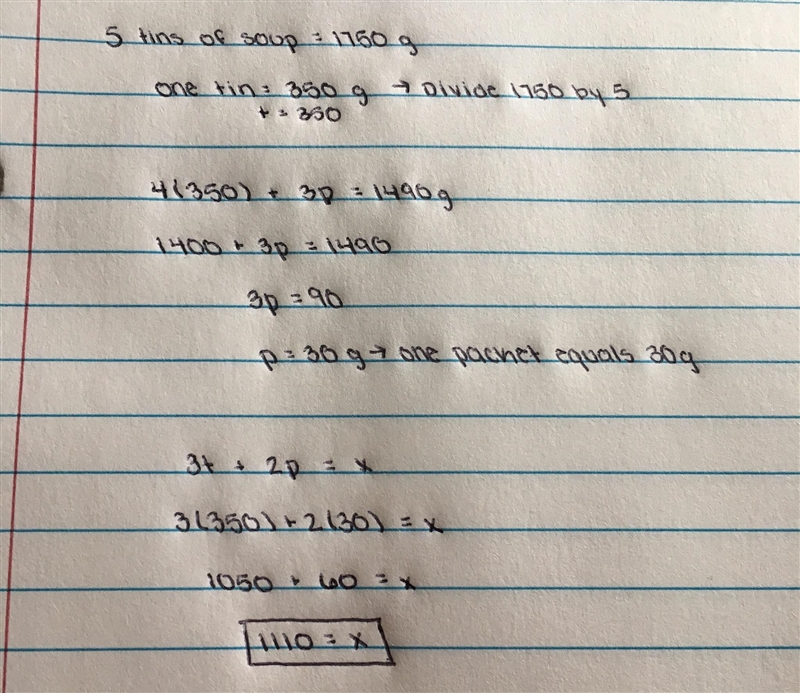 5 tins of soup = 1750 g
one tin = 350 g → Divide 1750 by 5
t = 350
4(350) + 3p = 1490g
1400 + 3p = 1490
3p = 90
p = 30 g → one packet equals 30g
3t + 2p = x
3(350) + 2(30) = x
1050 + 60 = x
1110 = x